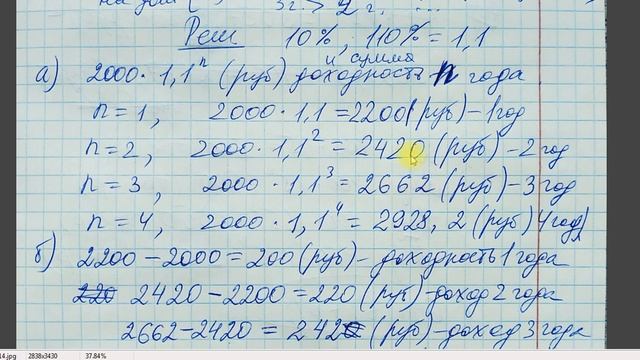 на дом 3г. > 2 г.
Реш 10%, 110% = 1,1
и сумма
а) 2000 · 1,1ⁿ (руб) доходность n года
n = 1, 2000 · 1,1 = 2200 (руб) – 1 год
n = 2, 2000 · 1,1² = 2420 (руб) – 2 год
n = 3, 2000 · 1,1³ = 2662 (руб) – 3 год
n = 4, 2000 · 1,1⁴ = 2928,2 (руб) 4 года
б) 2200 – 2000 = 200 (руб) – доходность 1 года
220 2420 – 2200 = 220 (руб) – доход 2 года
2662 – 2420 = 242 (руб) – доход 3 года
14.jpg 2838x3430 37.84%